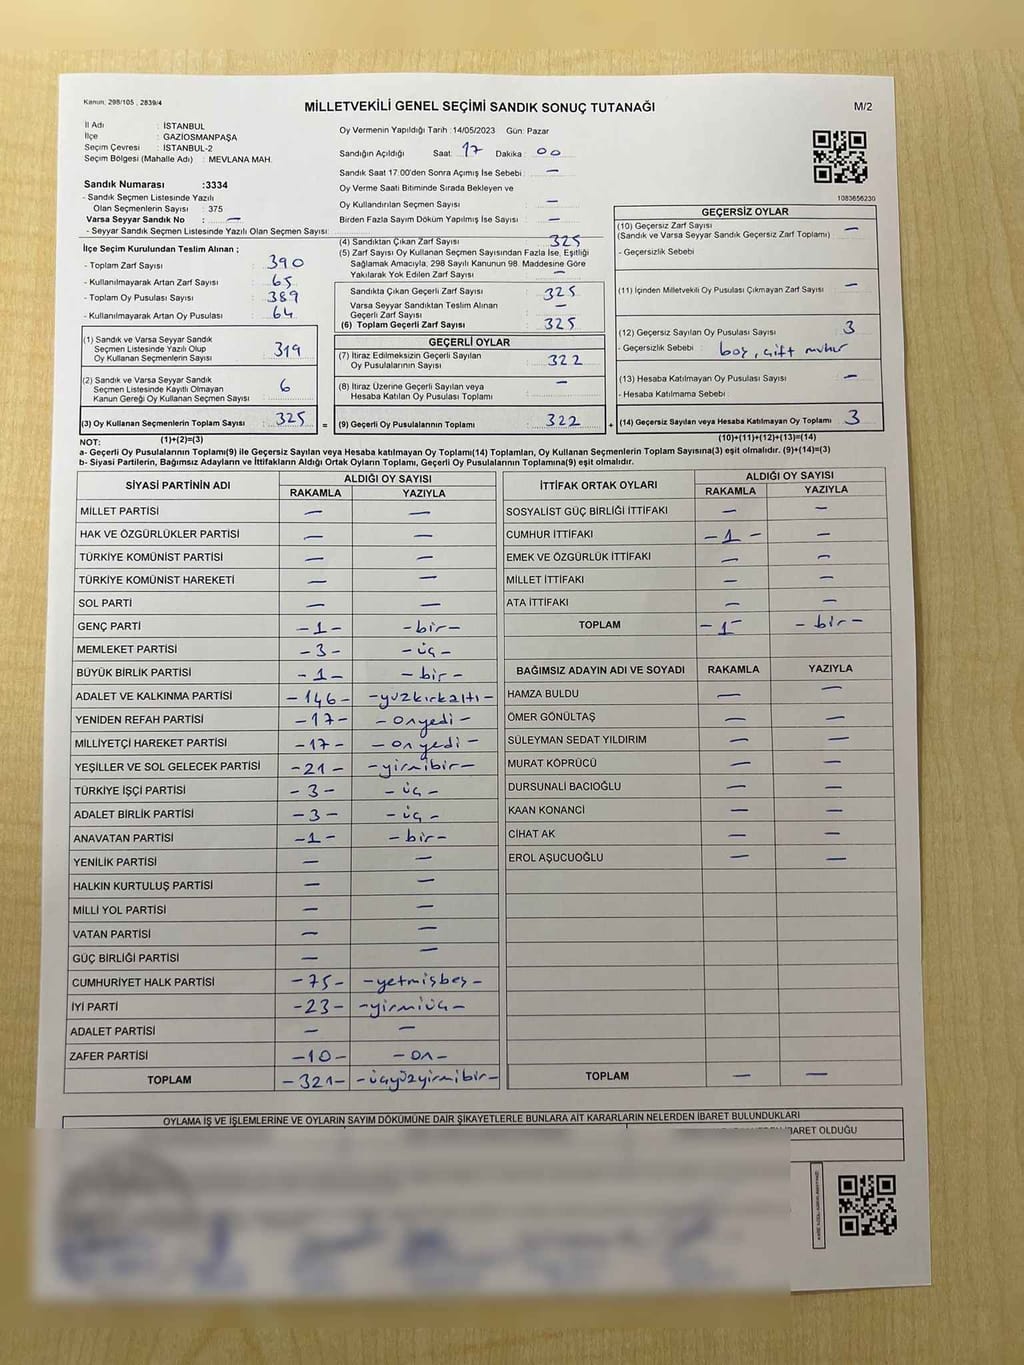 Kanun: 298/105 , 2839/4
MİLLETVEKİLİ GENEL SEÇİMİ SANDIK SONUÇ TUTANAĞI
M/2
İl Adı : İSTANBUL
İlçe : GAZİOSMANPAŞA
Seçim Çevresi : İSTANBUL-2
Seçim Bölgesi (Mahalle Adı) : MEVLANA MAH.
Oy Vermenin Yapıldığı Tarih :14/05/2023 Gün: Pazar
Sandığın Açıldığı Saat: 17 Dakika : 00
Sandık Saat 17.00'den Sonra Açımış İse Sebebi : —
Oy Verme Saati Bitiminde Sırada Bekleyen ve
Oy Kullandırılan Seçmen Sayısı : —
Birden Fazla Sayım Döküm Yapılmış İse Sayısı : —
1083656230
Sandık Numarası :3334
- Sandık Seçmen Listesinde Yazılı
Olan Seçmenlerin Sayısı : 375
Varsa Seyyar Sandık No : —
- Seyyar Sandık Seçmen Listesinde Yazılı Olan Seçmen Sayısı:
İlçe Seçim Kurulundan Teslim Alınan ;
- Toplam Zarf Sayısı : 390
- Kullanılmayarak Artan Zarf Sayısı : 65
- Toplam Oy Pusulası Sayısı : 389
- Kullanılmayarak Artan Oy Pusulası : 64
(1) Sandık ve Varsa Seyyar Sandık
Seçmen Listesinde Yazılı Olup
Oy Kullanan Seçmenlerin Sayısı : 319
(2) Sandık ve Varsa Seyyar Sandık
Seçmen Listesinde Kayıtlı Olmayan
Kanun Gereği Oy Kullanan Seçmen Sayısı : 6
(3) Oy Kullanan Seçmenlerin Toplam Sayısı : 325
(4) Sandıktan Çıkan Zarf Sayısı : 325
(5) Zarf Sayısı Oy Kullanan Seçmen Sayısından Fazla İse, Eşitliği
Sağlamak Amacıyla, 298 Sayılı Kanunun 98. Maddesine Göre
Yakılarak Yok Edilen Zarf Sayısı : —
Sandıkta Çıkan Geçerli Zarf Sayısı : 325
Varsa Seyyar Sandıktan Teslim Alınan
Geçerli Zarf Sayısı : —
(6) Toplam Geçerli Zarf Sayısı : 325
GEÇERLİ OYLAR
(7) İtiraz Edilmeksizin Geçerli Sayılan
Oy Pusulalarının Sayısı : 322
(8) İtiraz Üzerine Geçerli Sayılan veya
Hesaba Katılan Oy Pusulası Toplamı : —
= (9) Geçerli Oy Pusulalarının Toplamı : 322
GEÇERSİZ OYLAR
(10) Geçersiz Zarf Sayısı : —
(Sandık ve Varsa Seyyar Sandık Geçersiz Zarf Toplamı)
- Geçersizlik Sebebi
(11) İçinden Milletvekili Oy Pusulası Çıkmayan Zarf Sayısı : —
(12) Geçersiz Sayılan Oy Pusulası Sayısı : 3
- Geçersizlik Sebebi : boş, çift mühür
(13) Hesaba Katılmayan Oy Pusulası Sayısı : —
- Hesaba Katılmama Sebebi :
+ (14) Geçersiz Sayılan veya Hesaba Katılmayan Oy Toplamı : 3
NOT: (1)+(2)=(3) (10)+(11)+(12)+(13)=(14)
a- Geçerli Oy Pusulalarının Toplamı(9) ile Geçersiz Sayılan veya Hesaba katılmayan Oy Toplamı(14) Toplamları, Oy Kullanan Seçmenlerin Toplam Sayısına(3) eşit olmalıdır. (9)+(14)=(3)
b- Siyasi Partilerin, Bağımsız Adayların ve İttifakların Aldığı Ortak Oyların Toplamı, Geçerli Oy Pusulalarının Toplamına(9) eşit olmalıdır.
SİYASİ PARTİNİN ADI ALDIĞI OY SAYISI
RAKAMLA YAZIYLA
MİLLET PARTİSİ — —
HAK VE ÖZGÜRLÜKLER PARTİSİ — —
TÜRKİYE KOMÜNİST PARTİSİ — —
TÜRKİYE KOMÜNİST HAREKETİ — —
SOL PARTİ — —
GENÇ PARTİ -1- -bir-
MEMLEKET PARTİSİ -3- -üç-
BÜYÜK BİRLİK PARTİSİ -1- -bir-
ADALET VE KALKINMA PARTİSİ -146- -yüzkırkaltı-
YENİDEN REFAH PARTİSİ -17- -onyedi-
MİLLİYETÇİ HAREKET PARTİSİ -17- -onyedi-
YEŞİLLER VE SOL GELECEK PARTİSİ -21- -yirmibir-
TÜRKİYE İŞÇİ PARTİSİ -3- -üç-
ADALET BİRLİK PARTİSİ -3- -üç-
ANAVATAN PARTİSİ -1- -bir-
YENİLİK PARTİSİ — —
HALKIN KURTULUŞ PARTİSİ — —
MİLLİ YOL PARTİSİ — —
VATAN PARTİSİ — —
GÜÇ BİRLİĞİ PARTİSİ — —
CUMHURİYET HALK PARTİSİ -75- -yetmişbeş-
İYİ PARTİ -23- -yirmiüç-
ADALET PARTİSİ — —
ZAFER PARTİSİ -10- -on-
TOPLAM -321- -üçyüzyirmibir-
İTTİFAK ORTAK OYLARI ALDIĞI OY SAYISI
RAKAMLA YAZIYLA
SOSYALİST GÜÇ BİRLİĞİ İTTİFAKI — —
CUMHUR İTTİFAKI -1- —
EMEK VE ÖZGÜRLÜK İTTİFAKI — —
MİLLET İTTİFAKI — —
ATA İTTİFAKI — —
TOPLAM -1- -bir-
BAĞIMSIZ ADAYIN ADI VE SOYADI RAKAMLA YAZIYLA
HAMZA BULDU — —
ÖMER GÖNÜLTAŞ — —
SÜLEYMAN SEDAT YILDIRIM — —
MURAT KÖPRÜCÜ — —
DURSUNALİ BACIOĞLU — —
KAAN KONANCİ — —
CİHAT AK — —
EROL AŞUCUOĞLU — —
TOPLAM — —
OYLAMA İŞ VE İŞLEMLERİNE VE OYLARIN SAYIM DÖKÜMÜNE DAİR ŞİKAYETLERLE BUNLARA AİT KARARLARIN NELERDEN İBARET BULUNDUKLARI
İBARET OLDUĞU